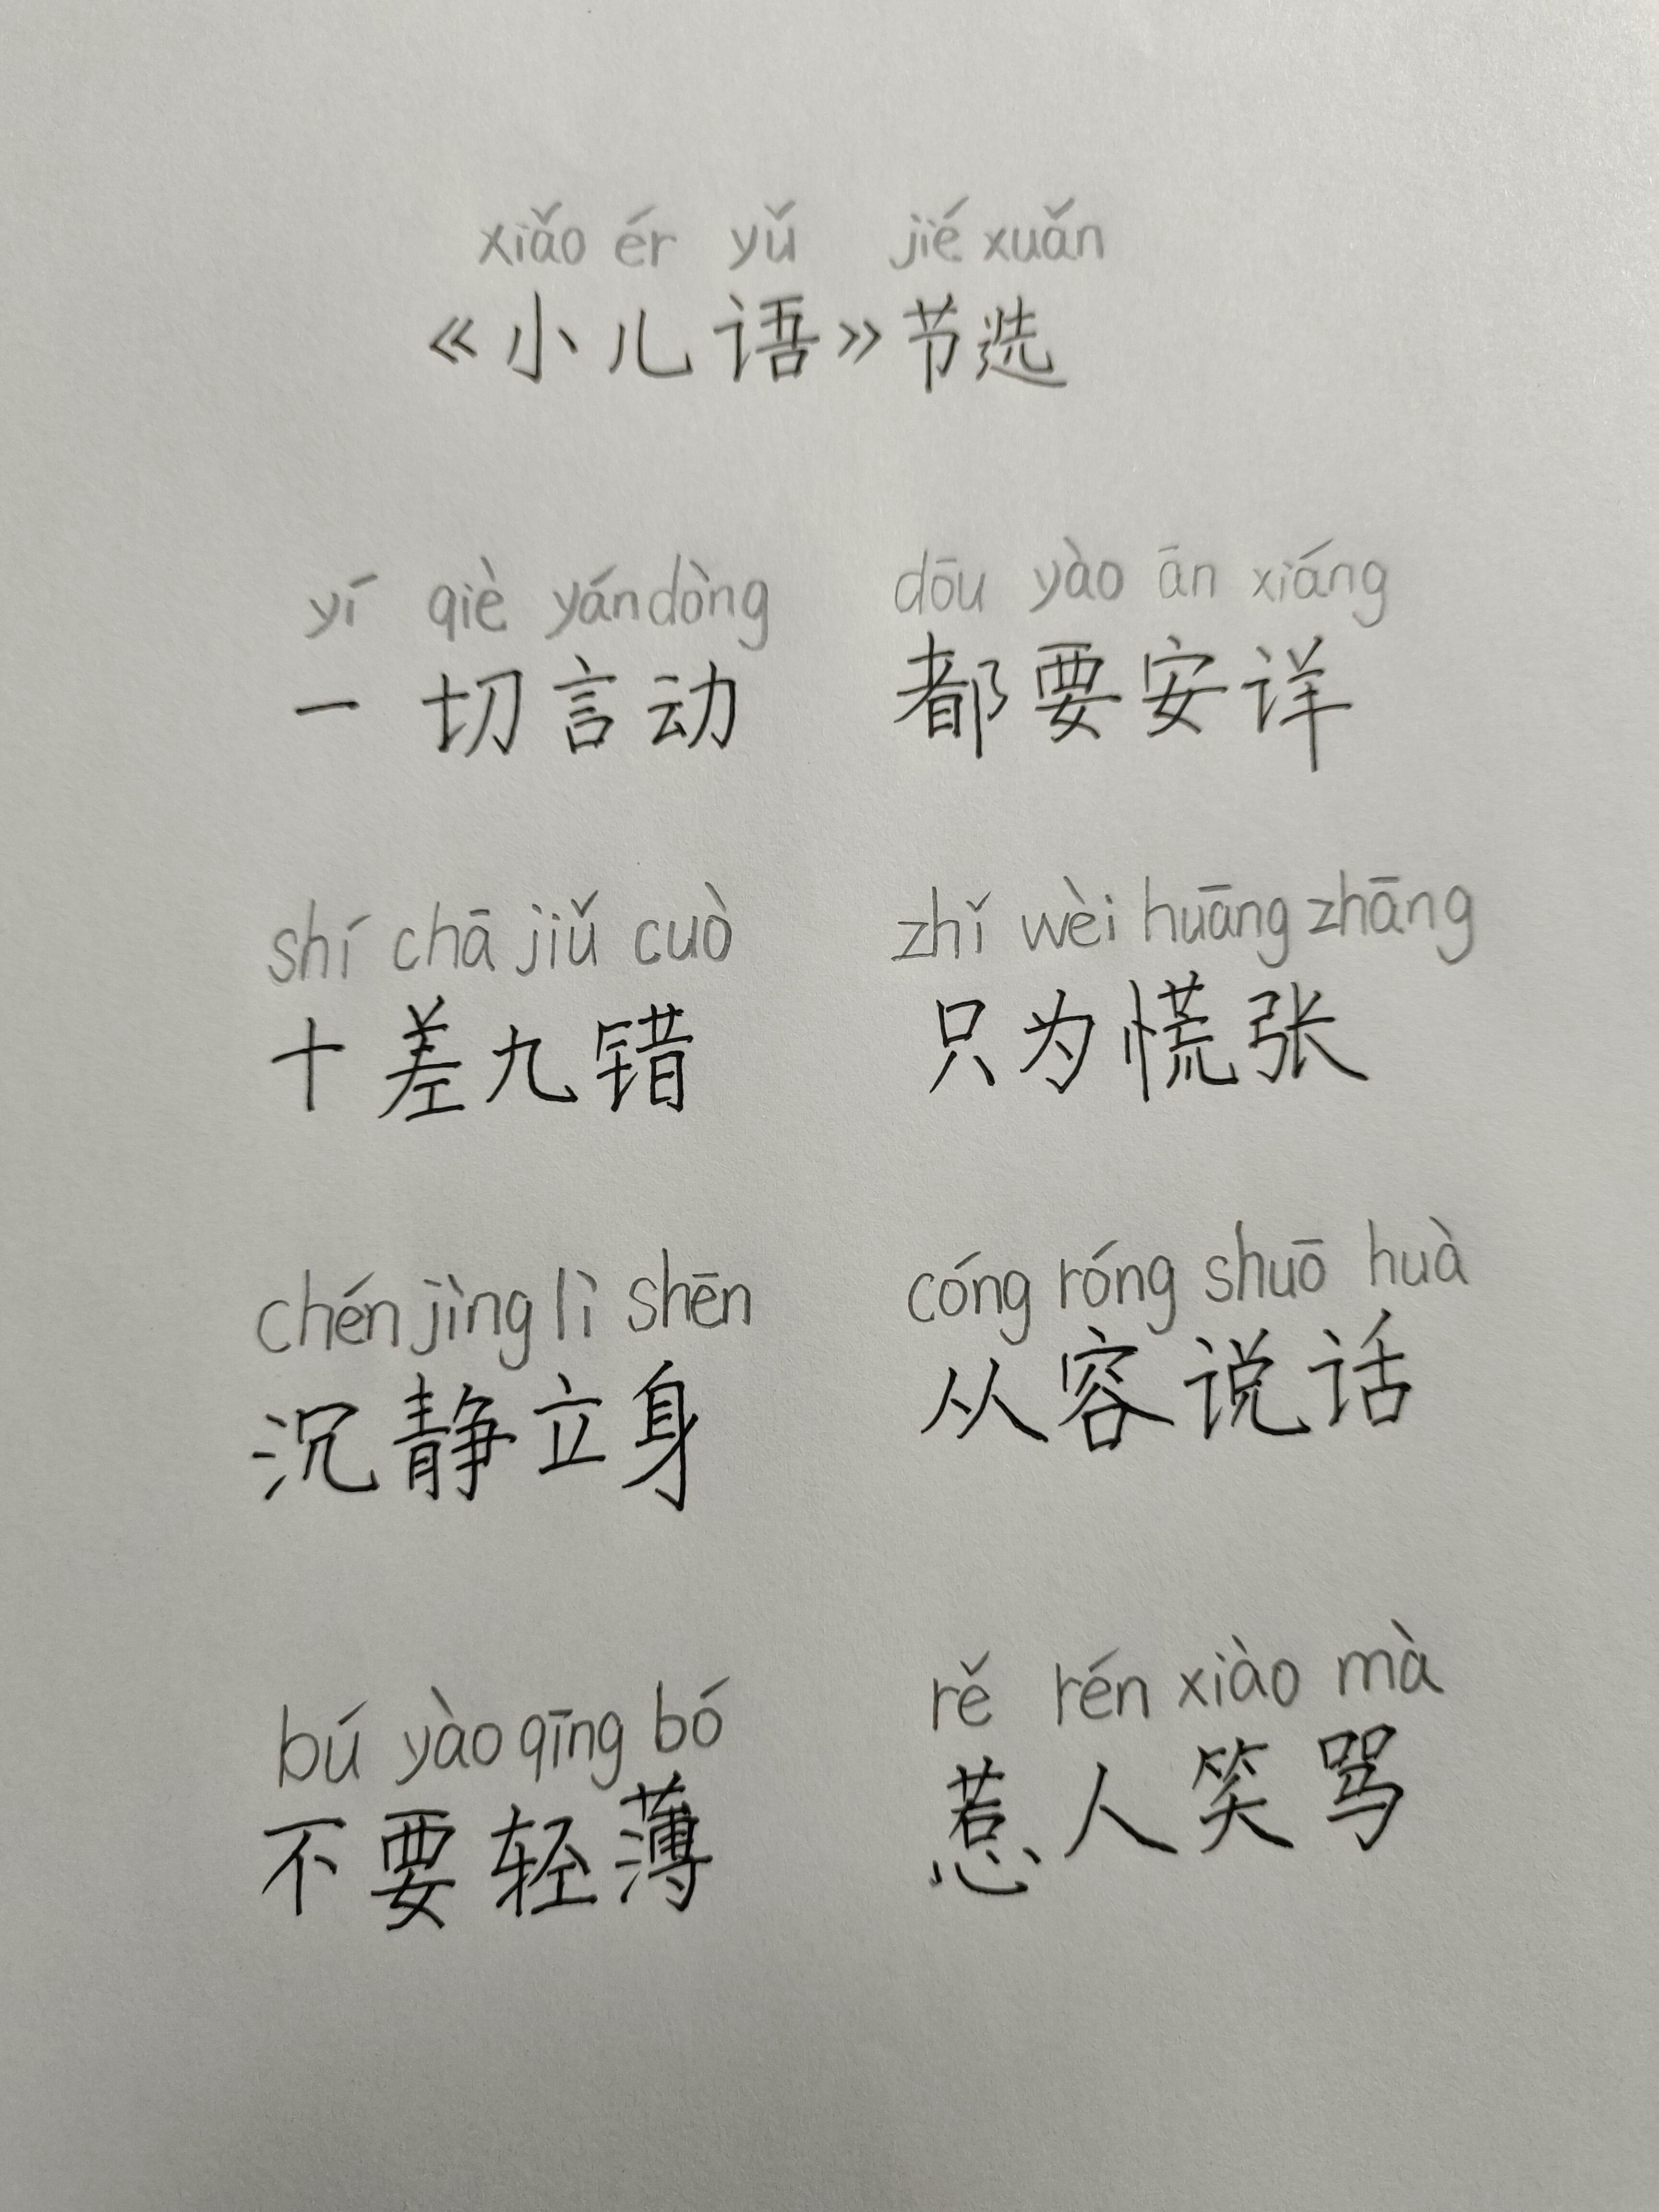 xiǎo ér yǔ jié xuǎn
《小儿语》节选
yí qiè yán dòng dōu yào ān xiáng
一切言动 都要安详
shí chā jiǔ cuò zhǐ wèi huāng zhāng
十差九错 只为慌张
chén jìng lì shēn cóng róng shuō huà
沉静立身 从容说话
bú yào qīng bó rě rén xiào mà
不要轻薄 惹人笑骂